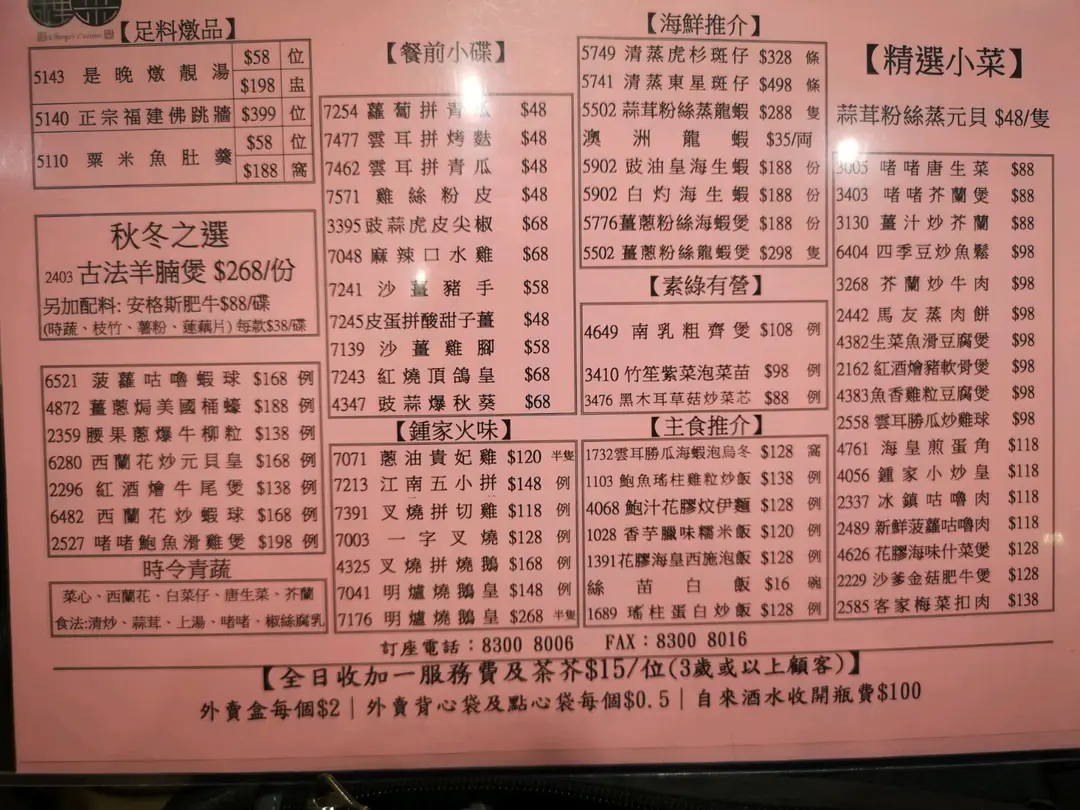 Chung's Cuisine
【足料燉品】
5143 是晚燉靚湯 $58 位
$198 盅
5140 正宗福建佛跳牆 $399 位
5110 粟米魚肚羹 $58 位
$188 窩
秋冬之選
2403 古法羊腩煲 $268/份
另加配料: 安格斯肥牛$88/碟
(時蔬、枝竹、薯粉、蓮藕片) 每款$38/碟
6521 菠蘿咕嚕蝦球 $168 例
4872 薑蔥焗美國桶蠔 $188 例
2359 腰果蔥爆牛柳粒 $138 例
6280 西蘭花炒元貝皇 $168 例
2296 紅酒燴牛尾煲 $138 例
6482 西蘭花炒蝦球 $168 例
2527 啫啫鮑魚滑雞煲 $198 例
時令青蔬
菜心、西蘭花、白菜仔、唐生菜、芥蘭
食法:清炒、蒜茸、上湯、啫啫、椒絲腐乳
【餐前小碟】
7254 蘿蔔拼青瓜 $48
7477 雲耳拼烤麩 $48
7462 雲耳拼青瓜 $48
7571 雞絲粉皮 $48
3395 豉蒜虎皮尖椒 $68
7048 麻辣口水雞 $68
7241 沙薑豬手 $58
7245 皮蛋拼酸甜子薑 $48
7139 沙薑雞腳 $58
7243 紅燒頂鴿皇 $68
4347 豉蒜爆秋葵 $68
【鍾家火味】
7071 蔥油貴妃雞 $120 半隻
7213 江南五小拼 $148 例
7391 叉燒拼切雞 $118 例
7003 一字叉燒 $128 例
4325 叉燒拼燒鵝 $168 例
7041 明爐燒鵝皇 $148 例
7176 明爐燒鵝皇 $268 半隻
【海鮮推介】
5749 清蒸虎杉斑仔 $328 條
5741 清蒸東星斑仔 $498 條
5502 蒜茸粉絲蒸龍蝦 $288 隻
澳洲龍蝦 $35/両
5902 豉油皇海生蝦 $188 份
5902 白灼海生蝦 $188 份
5776 薑蔥粉絲海蝦煲 $188 份
5502 薑蔥粉絲龍蝦煲 $298 隻
【素綠有營】
4649 南乳粗齊煲 $108 例
3410 竹笙紫菜泡菜苗 $98 例
3476 黑木耳草菇炒菜芯 $88 例
【主食推介】
1732 雲耳勝瓜海蝦泡烏冬 $128 窩
1103 鮑魚瑤柱雞粒炒飯 $138 例
4068 鮑汁花膠炆伊麵 $128 例
1028 香芋臘味糯米飯 $120 例
1391 花膠海皇西施泡飯 $128 例
絲苗白飯 $16 碗
1689 瑤柱蛋白炒飯 $128 例
【精選小菜】
蒜茸粉絲蒸元貝 $48/隻
3005 啫啫唐生菜 $88
3403 啫啫芥蘭煲 $88
3130 薑汁炒芥蘭 $88
6404 四季豆炒魚鬆 $98
3268 芥蘭炒牛肉 $98
2442 馬友蒸肉餅 $98
4382 生菜魚滑豆腐煲 $98
2162 紅酒燴豬軟骨煲 $98
4383 魚香雞粒豆腐煲 $98
2558 雲耳勝瓜炒雞球 $98
4761 海皇煎蛋角 $118
4056 鍾家小炒皇 $118
2337 冰鎮咕嚕肉 $118
2489 新鮮菠蘿咕嚕肉 $118
4626 花膠海味什菜煲 $128
2229 沙爹金菇肥牛煲 $128
2585 客家梅菜扣肉 $138
訂座電話：8300 8006 FAX：8300 8016
【全日收加一服務費及茶芥$15/位(3歲或以上顧客)】
外賣盒每個$2 | 外賣背心袋及點心袋每個$0.5 | 自來酒水收開瓶費$100